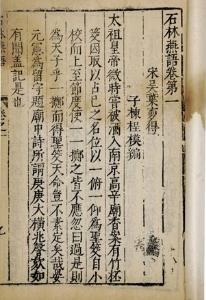 石林燕語卷第一
宋吳葉夢得
子棟桯模編
太祖皇帝微時嘗被酒入南京高辛廟香案有竹桮
筊因取以占己之名位以一俯一仰為聖筊自小
校而上至節度使一一擲之皆不應忽曰過是則
為天子乎一擲而得聖筊天命豈不素定矣哉晏
元獻為留守題廟中詩所謂庚庚大橫兆謦欬如
有聞蓋記是也